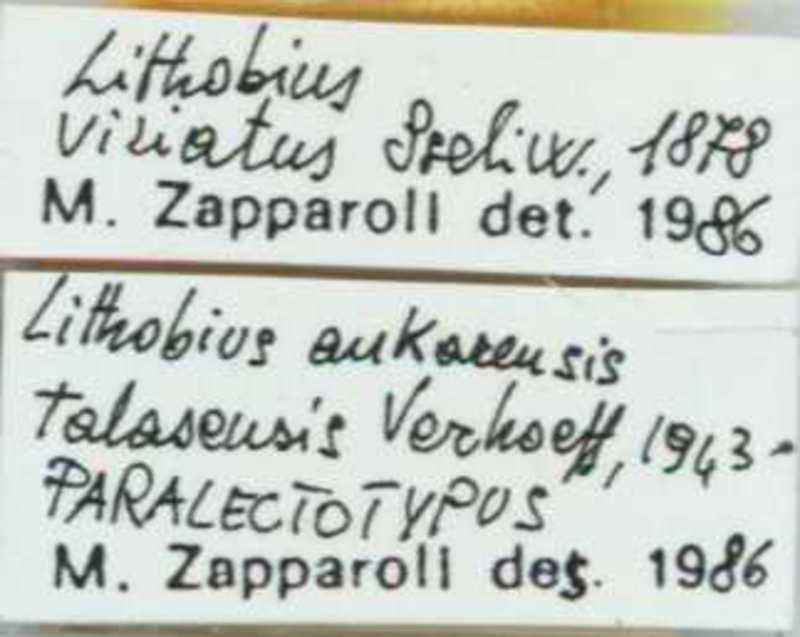 Lithobius
viriatus Sseliw., 1878
M. Zapparoli det. 1986
Lithobius ankarensis
talasensis Verhoeff, 1943 -
PARALECTOTYPUS
M. Zapparoli des. 1986